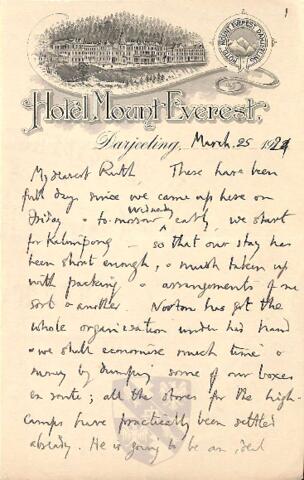 HOTEL MOUNT EVEREST, DARJEELING
Hotel Mount Everest,
Darjeeling, March. 25 1924
My dearest Ruth These have been
full days since we came up here on
Friday & to-morrow Wednesday early we start
for Kalimpong – so that our stay has
been short enough, & much taken up
with packing & arrangements of one
sort & another. Norton has got the
whole organisation under his hand
& we shall economise much time &
money by dumping some of our boxes
en route; all the stores for the high-
camps have practically been settled
already. He is going to be an ideal